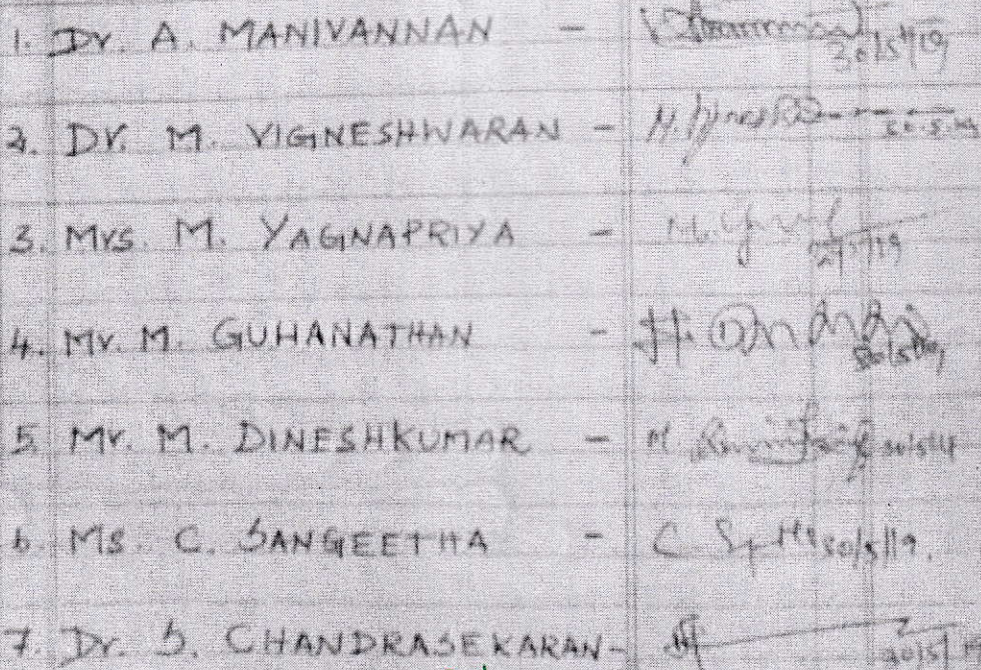 1. Dr. A. MANIVANNAN - 30/5/19
2. Dr. M. VIGNESHWARAN - 30.5.19
3. Mrs. M. YAGNAPRIYA -
4. Mr. M. GUHANATHAN -
5. Mr. M. DINESHKUMAR - M. 30/5/19
6. Ms. C. SANGEETHA - C. 30/5/19.
7. Dr. S. CHANDRASEKARAN-